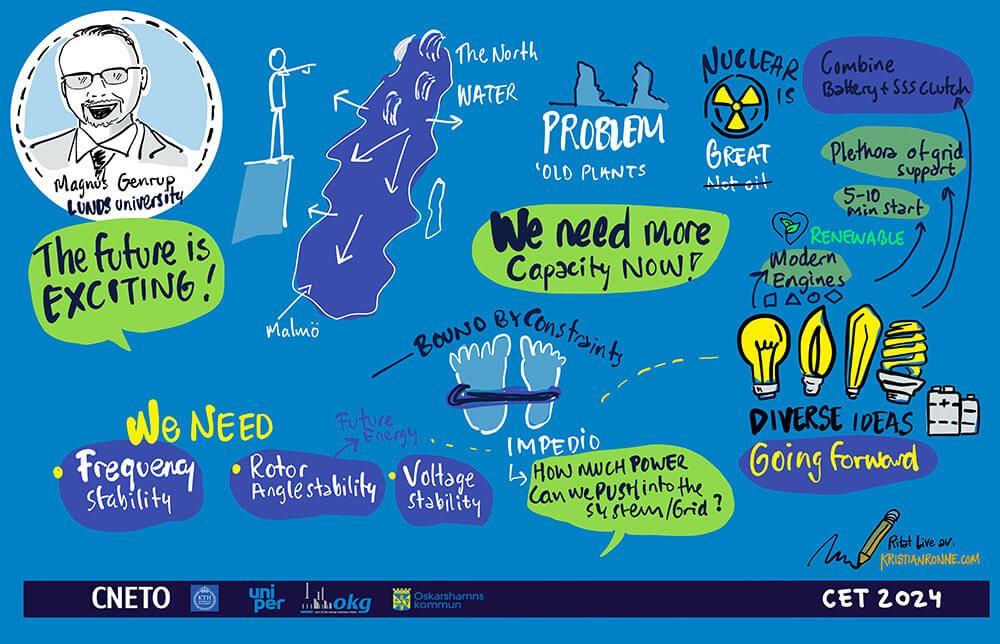 Magnus Genrup
LUNDS university
The future is
EXCITING!
The North
WATER
Malmö
PROBLEM
'OLD PLANTS
NUCLEAR
IS
GREAT
Not oil
We need more
Capacity NOW!
Combine
Battery + SSS Clutch
Plethora of grid
support
5-10
min start
RENEWABLE
Modern
Engines
DIVERSE IDEAS
Going forward
BOUND BY Constraints
IMPEDIO
HOW MUCH POWER
Can we PUSH into the
system/Grid?
We NEED
Frequency
Stability
Future
Energy
Rotor
Angle stability
Voltage
stability
Ritat Live av:
KRISTIANRONNE.COM
CNETO
KTH
uni
per
okg
Oskarshamns
kommun
CET 2024